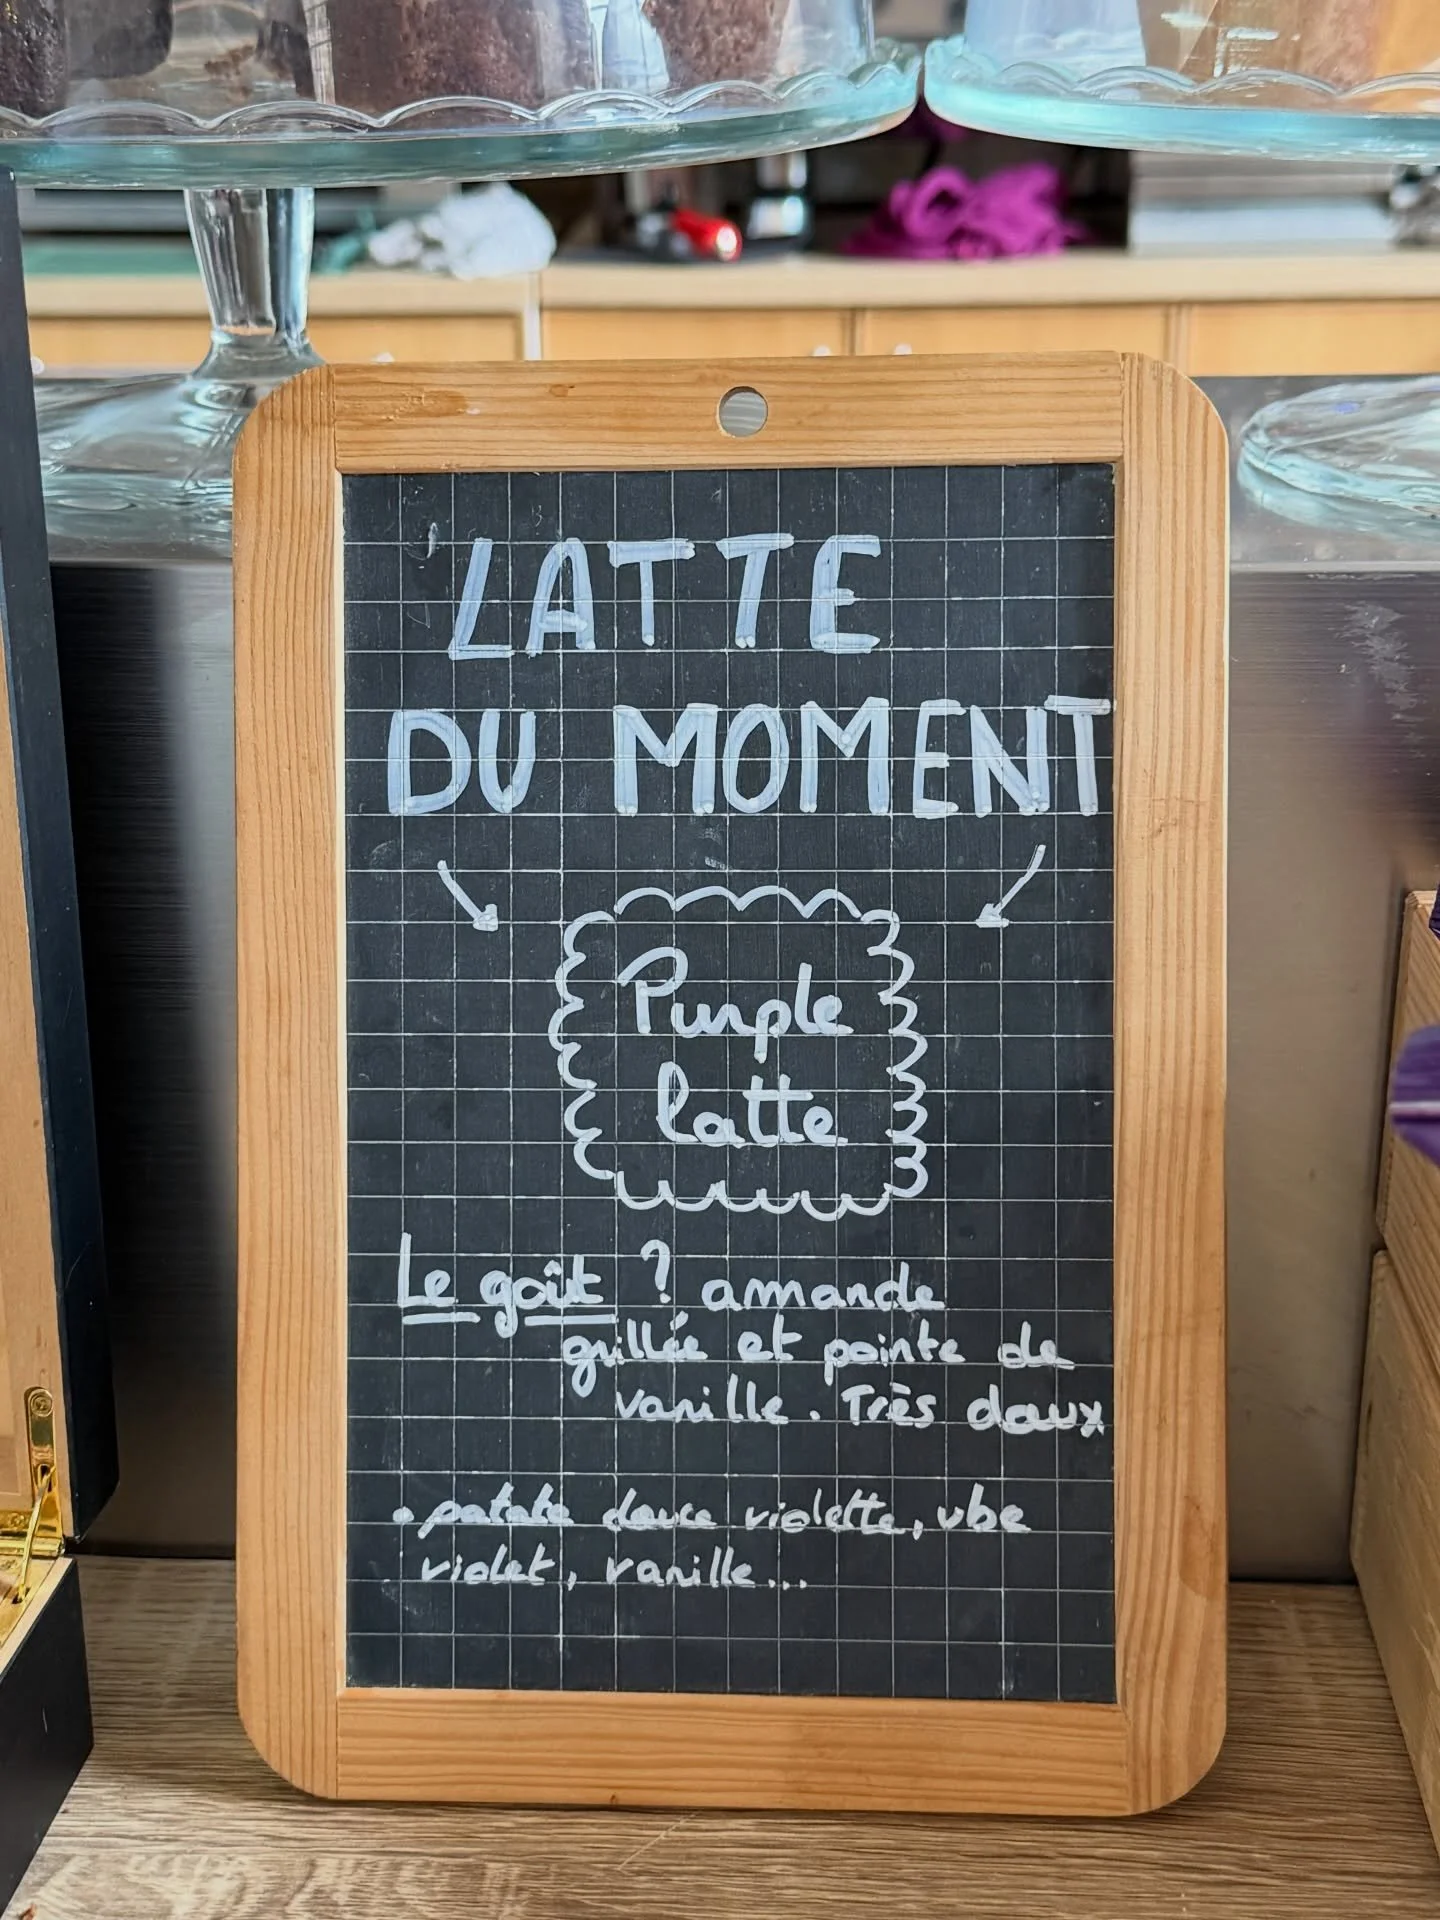 LATTE
DU MOMENT
Purple
latte
Le goût ? amande
grillée et pointe de
vanille. Très doux
• patate douce violette, ube
violet, vanille...